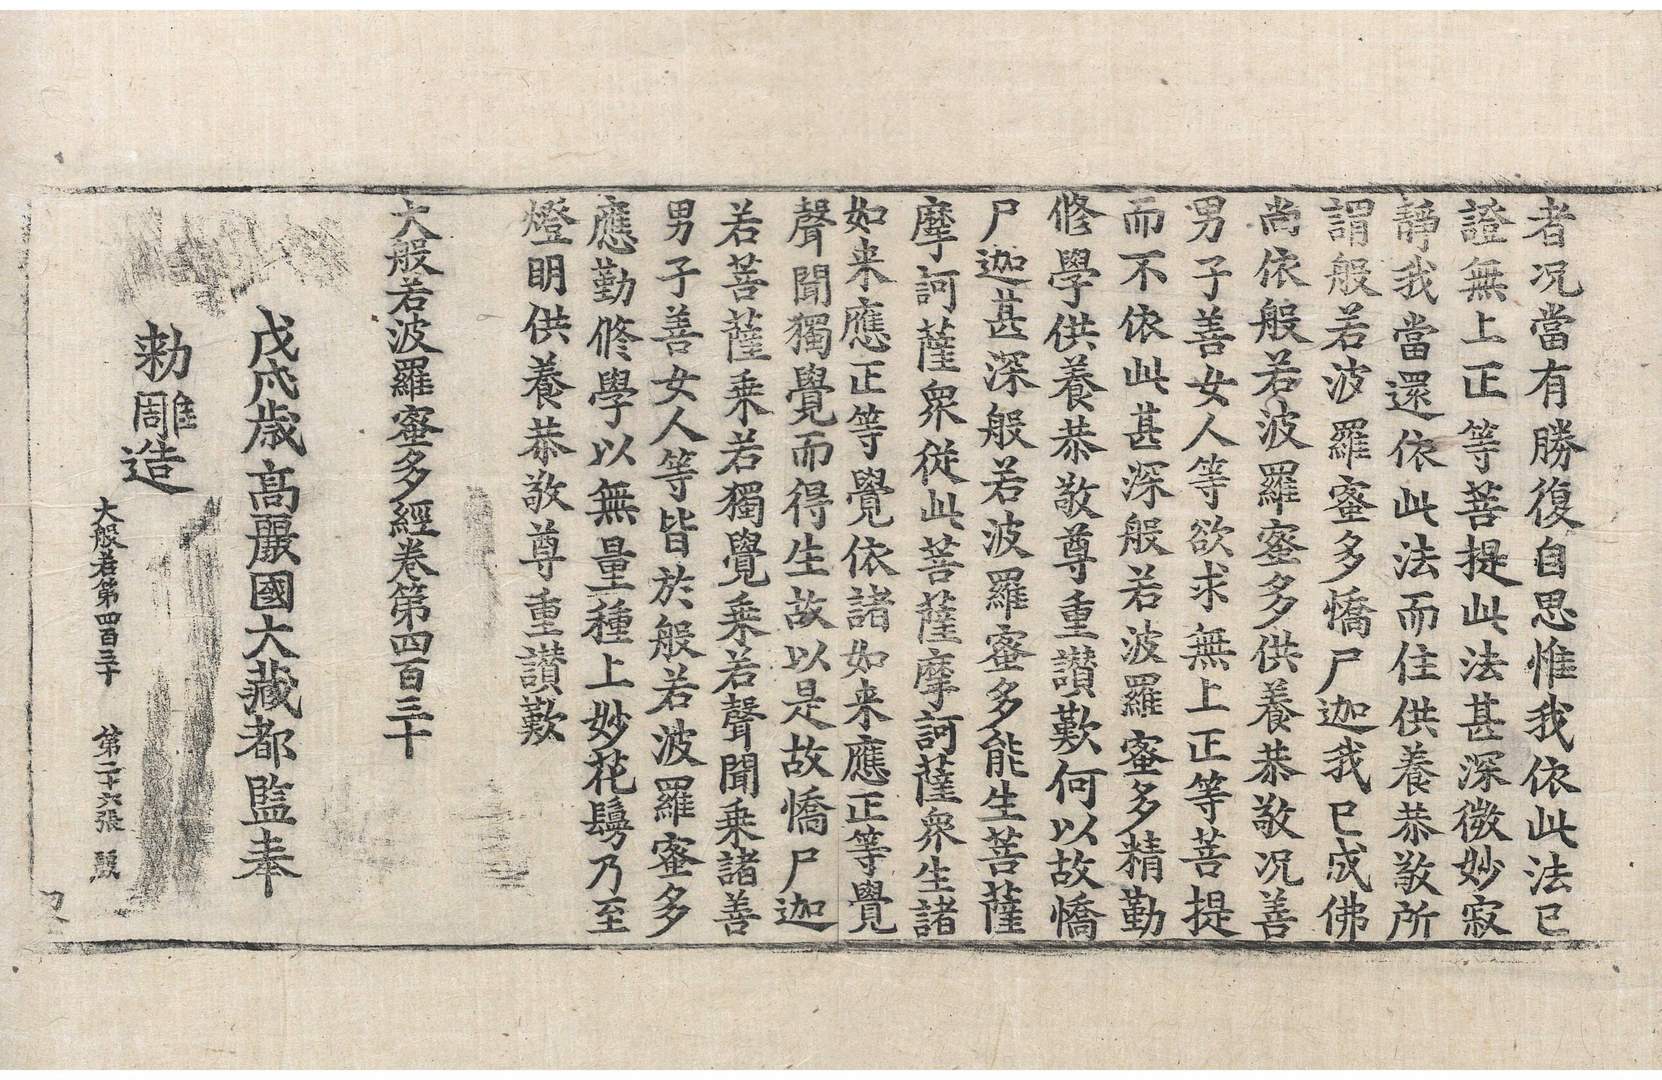 者况當有勝復自思惟我依此法已
證無上正等菩提此法甚深微妙寂
靜我當還依此法而住供養恭敬所
謂般若波羅蜜多憍尸迦我已成佛
尚依般若波羅蜜多供養恭敬况善
男子善女人等欲求無上正等菩提
而不依此甚深般若波羅蜜多精勤
修學供養恭敬尊重讚歎何以故憍
尸迦甚深般若波羅蜜多能生菩薩
摩訶薩衆從此菩薩摩訶薩衆生諸
如来應正等覺依諸如来應正等覺
聲聞獨覺而得生故以是故憍尸迦
若菩薩乗若獨覺乗若聲聞乗諸善
男子善女人等皆於般若波羅蜜多
應勤修學以無量種上妙花鬘乃至
燈明供養恭敬尊重讚歎
大般若波羅蜜多經卷第四百三十
戊戌歳高麗國大藏都監奉
勑雕造
大般若第四百三十 第二十六張